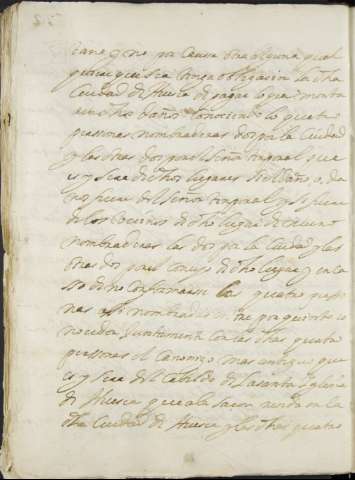 y no pa causa otra alguna qual
quiere que sea tenga obligacion la dha
Ciudad de Huesca de pagar lo que montaren
dhos daños Conociendo lo quatro
personas nombraderas dos por la Ciudad
y las otras dos por el Señor tenporal que
es y sera de dhos lugares si el daño o, da
ños fuere del Señor tenporal y si fuere
de los vecinos de dho lugar de
nombraderas las dos por la Ciudad y las
otras dos por el Concejo de dho lugar y en ca
so de no Conformarse las quatro perso
nas assi nombradas entre por quinto co
nocedor Juntamente con las dhas quatro
personas el Canonigo mas antiguo que
es y sera del Cabildo de la santa Iglesia
de Huesca que a la sacon resida en la
dha Ciudad de Huesca y las dhas quatro